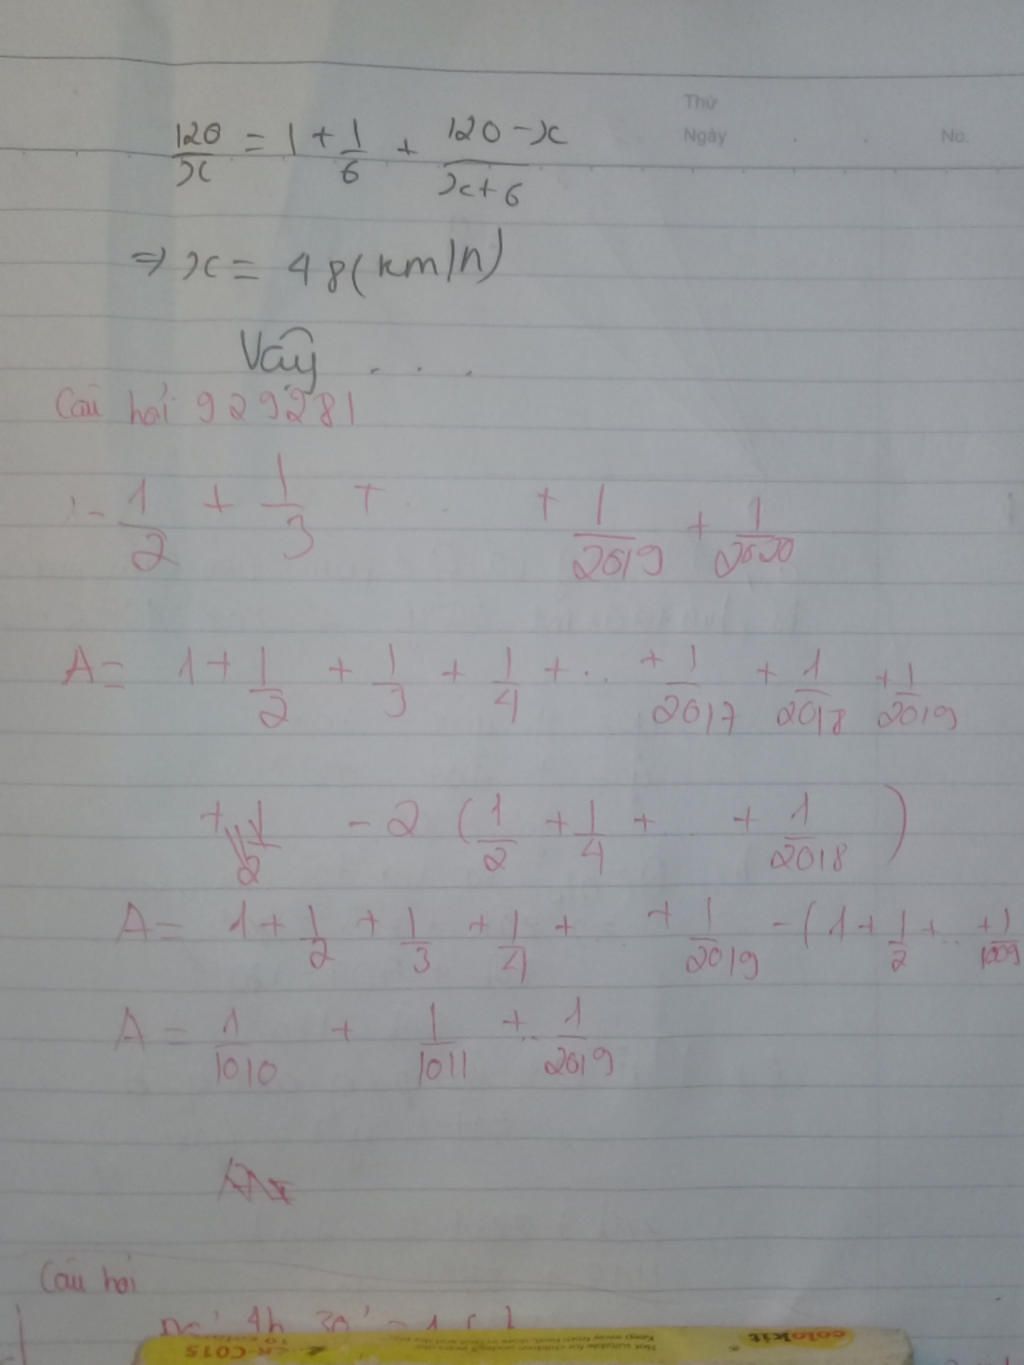 Thứ
Ngày No.
120/x = 1 + 1/6 + (120-x)/(x+6)
⇒ x = 48 (km/h)
Vậy . . .
Câu hỏi 929281
- 1/2 + 1/3 + .. + 1/2019 + 1/2020
A = 1 + 1/2 + 1/3 + 1/4 + .. + 1/2017 + 1/2018 + 1/2019
- 2 ( 1/2 + 1/4 + + 1/2018 )
A = 1 + 1/2 + 1/3 + 1/4 + + 1/2019 - ( 1 + 1/2 + .. + 1/1009
A = 1/1010 + 1/1011 + .. 1/2019
Câu hỏi
4h 30'
colokit
CR-C015